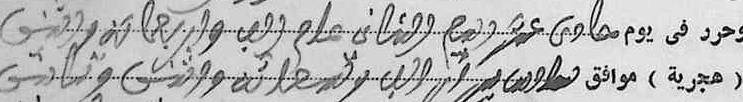 وحرر فى يوم حادى عشر ربيع الثانى عام الف واربعمائة واثنين
( هجرية ) موافق سادس فبراير الف وتسعمائة واثنين وثمانين